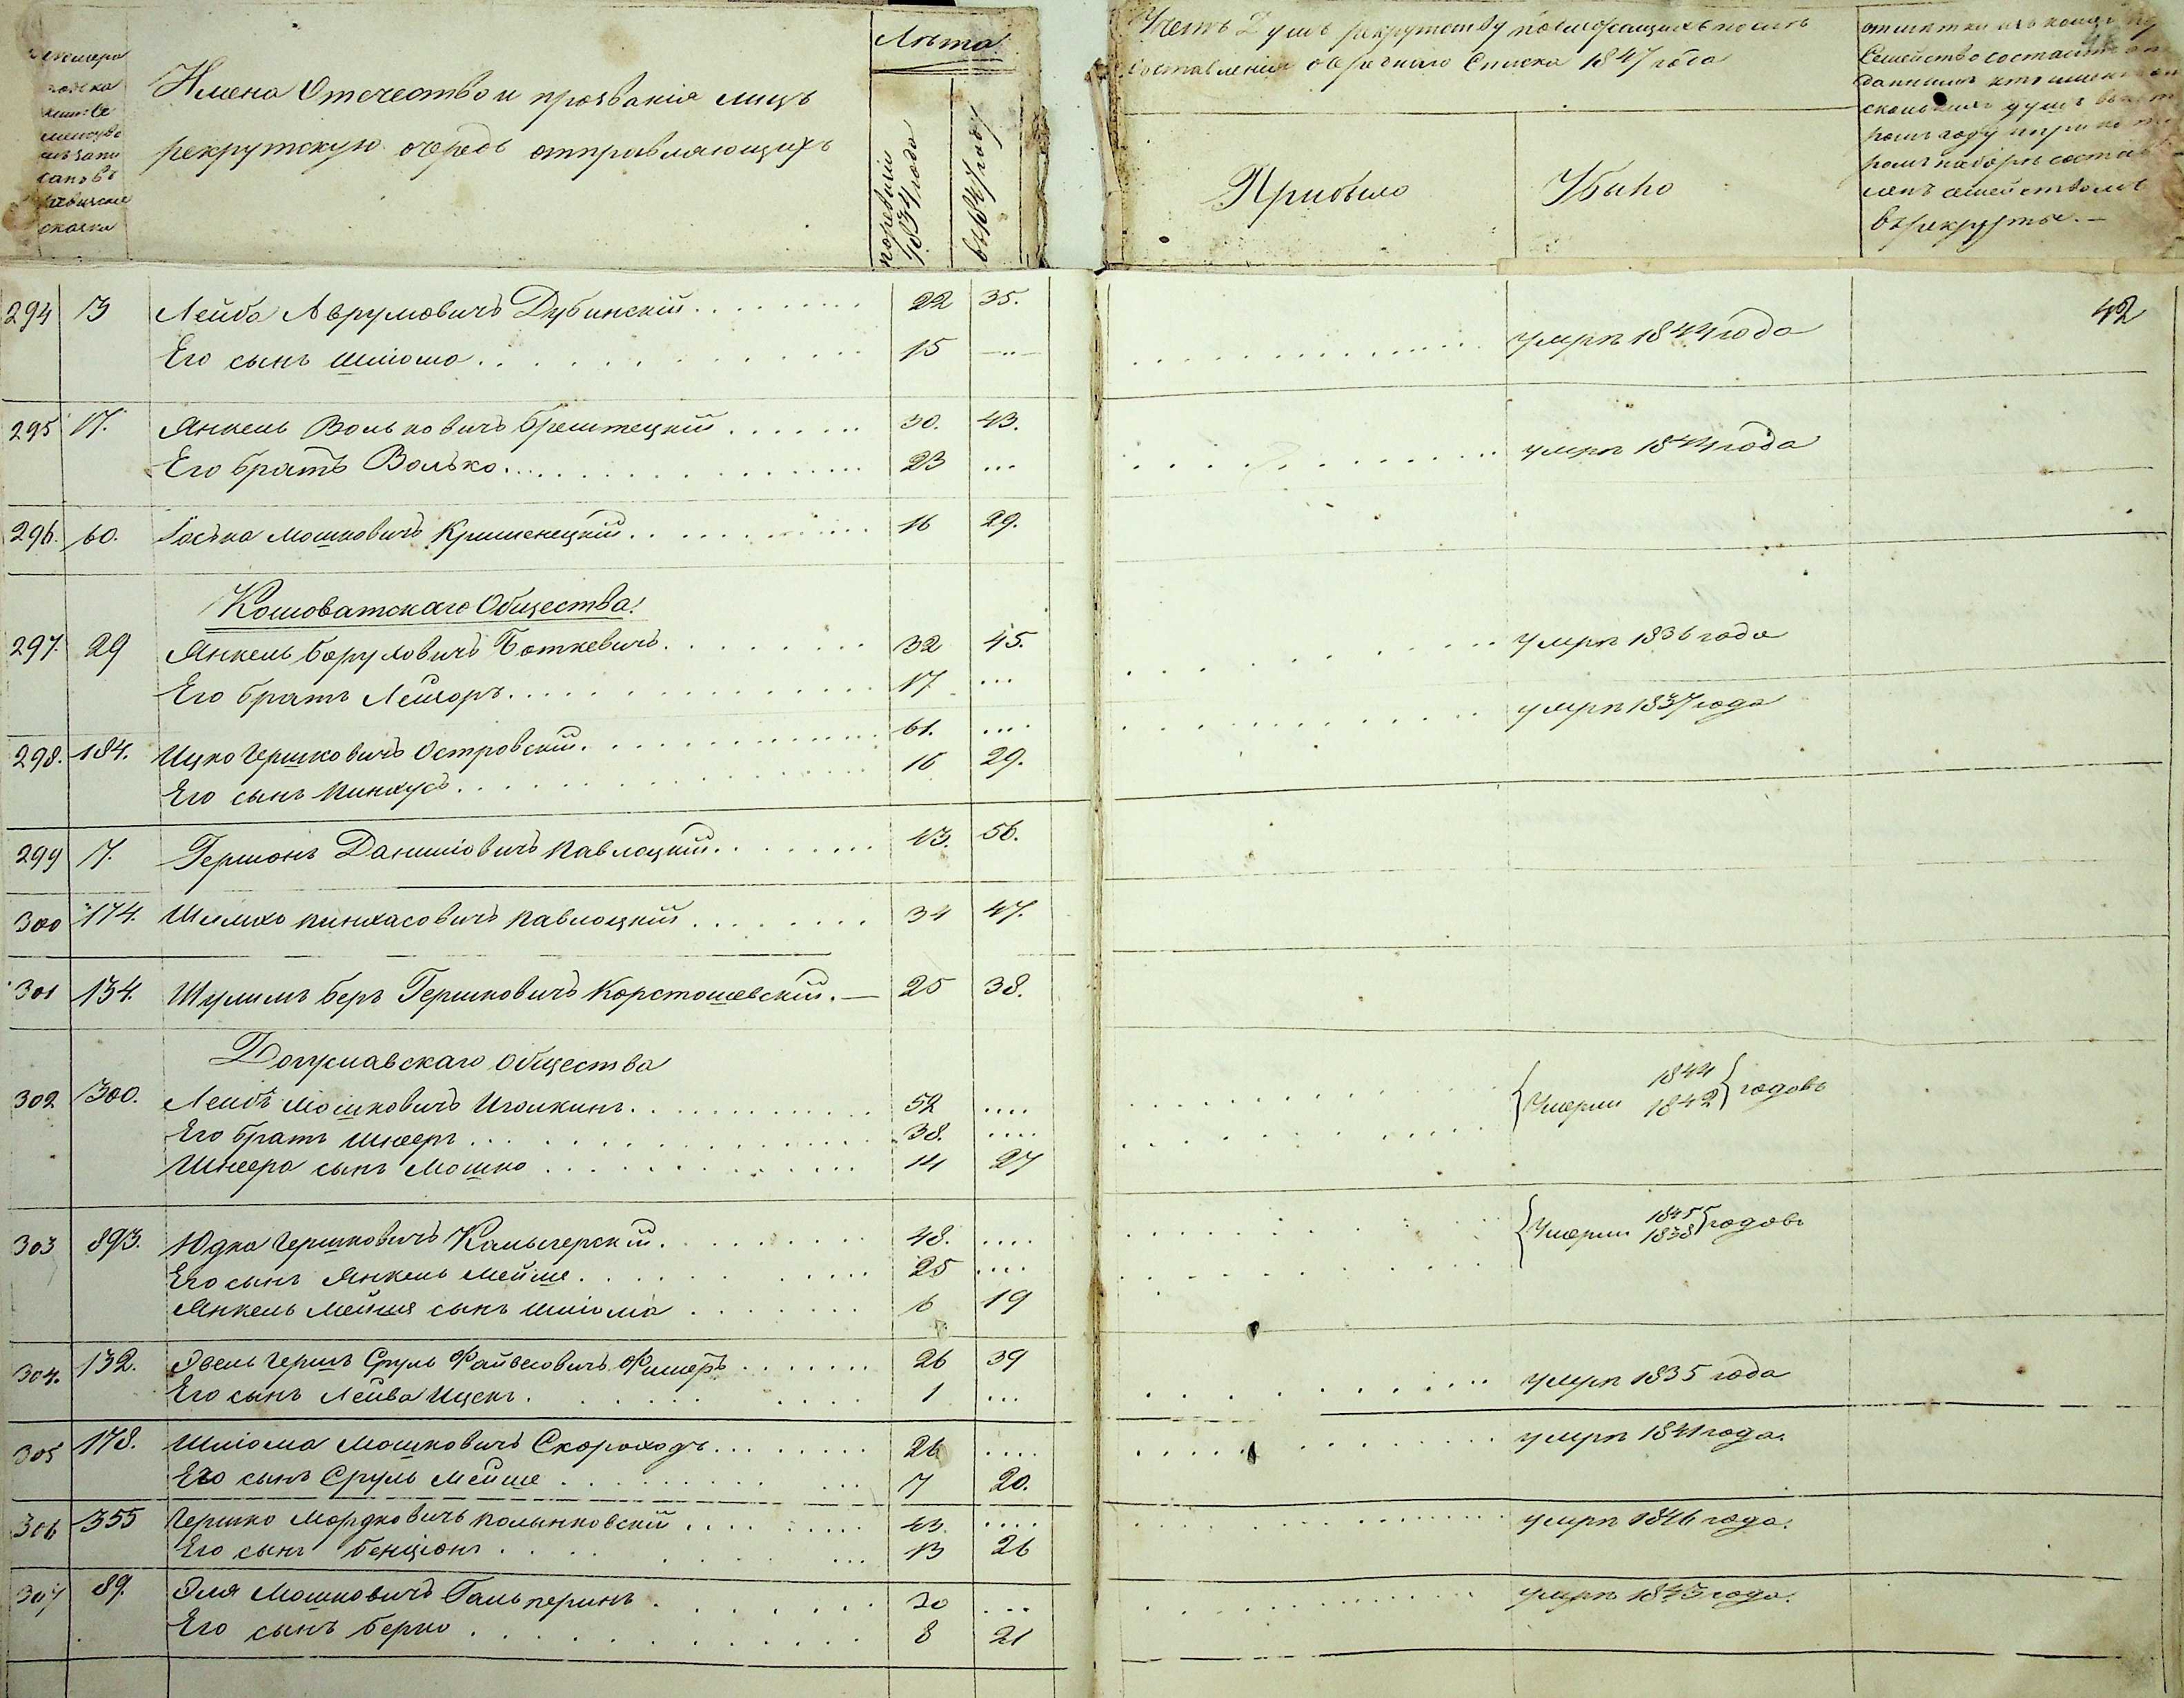 Имена Отечество и прозванія лицъ
рекрутскую очередь отправляющихъ
Лѣта
по ревизіи 1834 года
въ 1847 году
Число Душъ рекрутству подлежащихъ послѣ
составленія очереднаго Списка 1847 года
Прибыло
Убыло
въ рекруты.
42
294 13 Лейба Аврумовичъ Дубинскій 22 35.
Его сынъ Шліома 15 умре 1844 года
295 17. Янкель Вольковичъ Брештецкій 30. 43.
Его братъ Волько 23 ... умре 1844 года
296. 60. Іосъка Мошковичъ Кришенецкій 16 29.
Кошоватскаго Общества.
297. 29 Янкель Боруховичъ Боткевичъ 32 45.
Его братъ Лейзоръ 17 ... умре 1836 года
298. 184. Ицко Гершковичъ Островскій 61. ... умре 1837 года
Его сынъ Пинхусъ 16 29.
299 17. Гершонъ Даниліовичъ Павлоцкій 43. 56.
300 174. Шмилхо Пинхасовичъ Павлоцкій 34 47.
301 134. Шулимъ Беръ Гершковичъ Корстошевскій. 25 38.
Богуславскаго Общества
302 1300. Лейбъ Мошковичъ Иголкинъ 52 .... Умерли 1844 годовъ
Его братъ Шнееръ 38. .... 1842
Шнеера сынъ Мошко 14 27
303 893. Юдка Гершковичъ Калыгерскій 48. .... Умерли 1845 годовъ
Его сынъ Янкель Мейше 25 .... 1838
Янкель Мейшя сынъ Шліома 6 19
304. 132. Эвель Гершъ Сруль Файвеловичъ Фишеръ 26 39
Его сынъ Лейва Ицекъ 1 ... умре 1835 года
305 178. Шліома Мошковичъ Скороходъ 26 .... умре 1841 года.
Его сынъ Сруль Мейше 7 20.
306 355 Гершко Мордковичъ Полынковскій 43. .... умре 1846 года.
Его сынъ Бенціонъ 13 26
307 89. Эля Мошковичъ Гальперинъ 30 ... умре 1843 года.
Его сынъ Берко 8 21